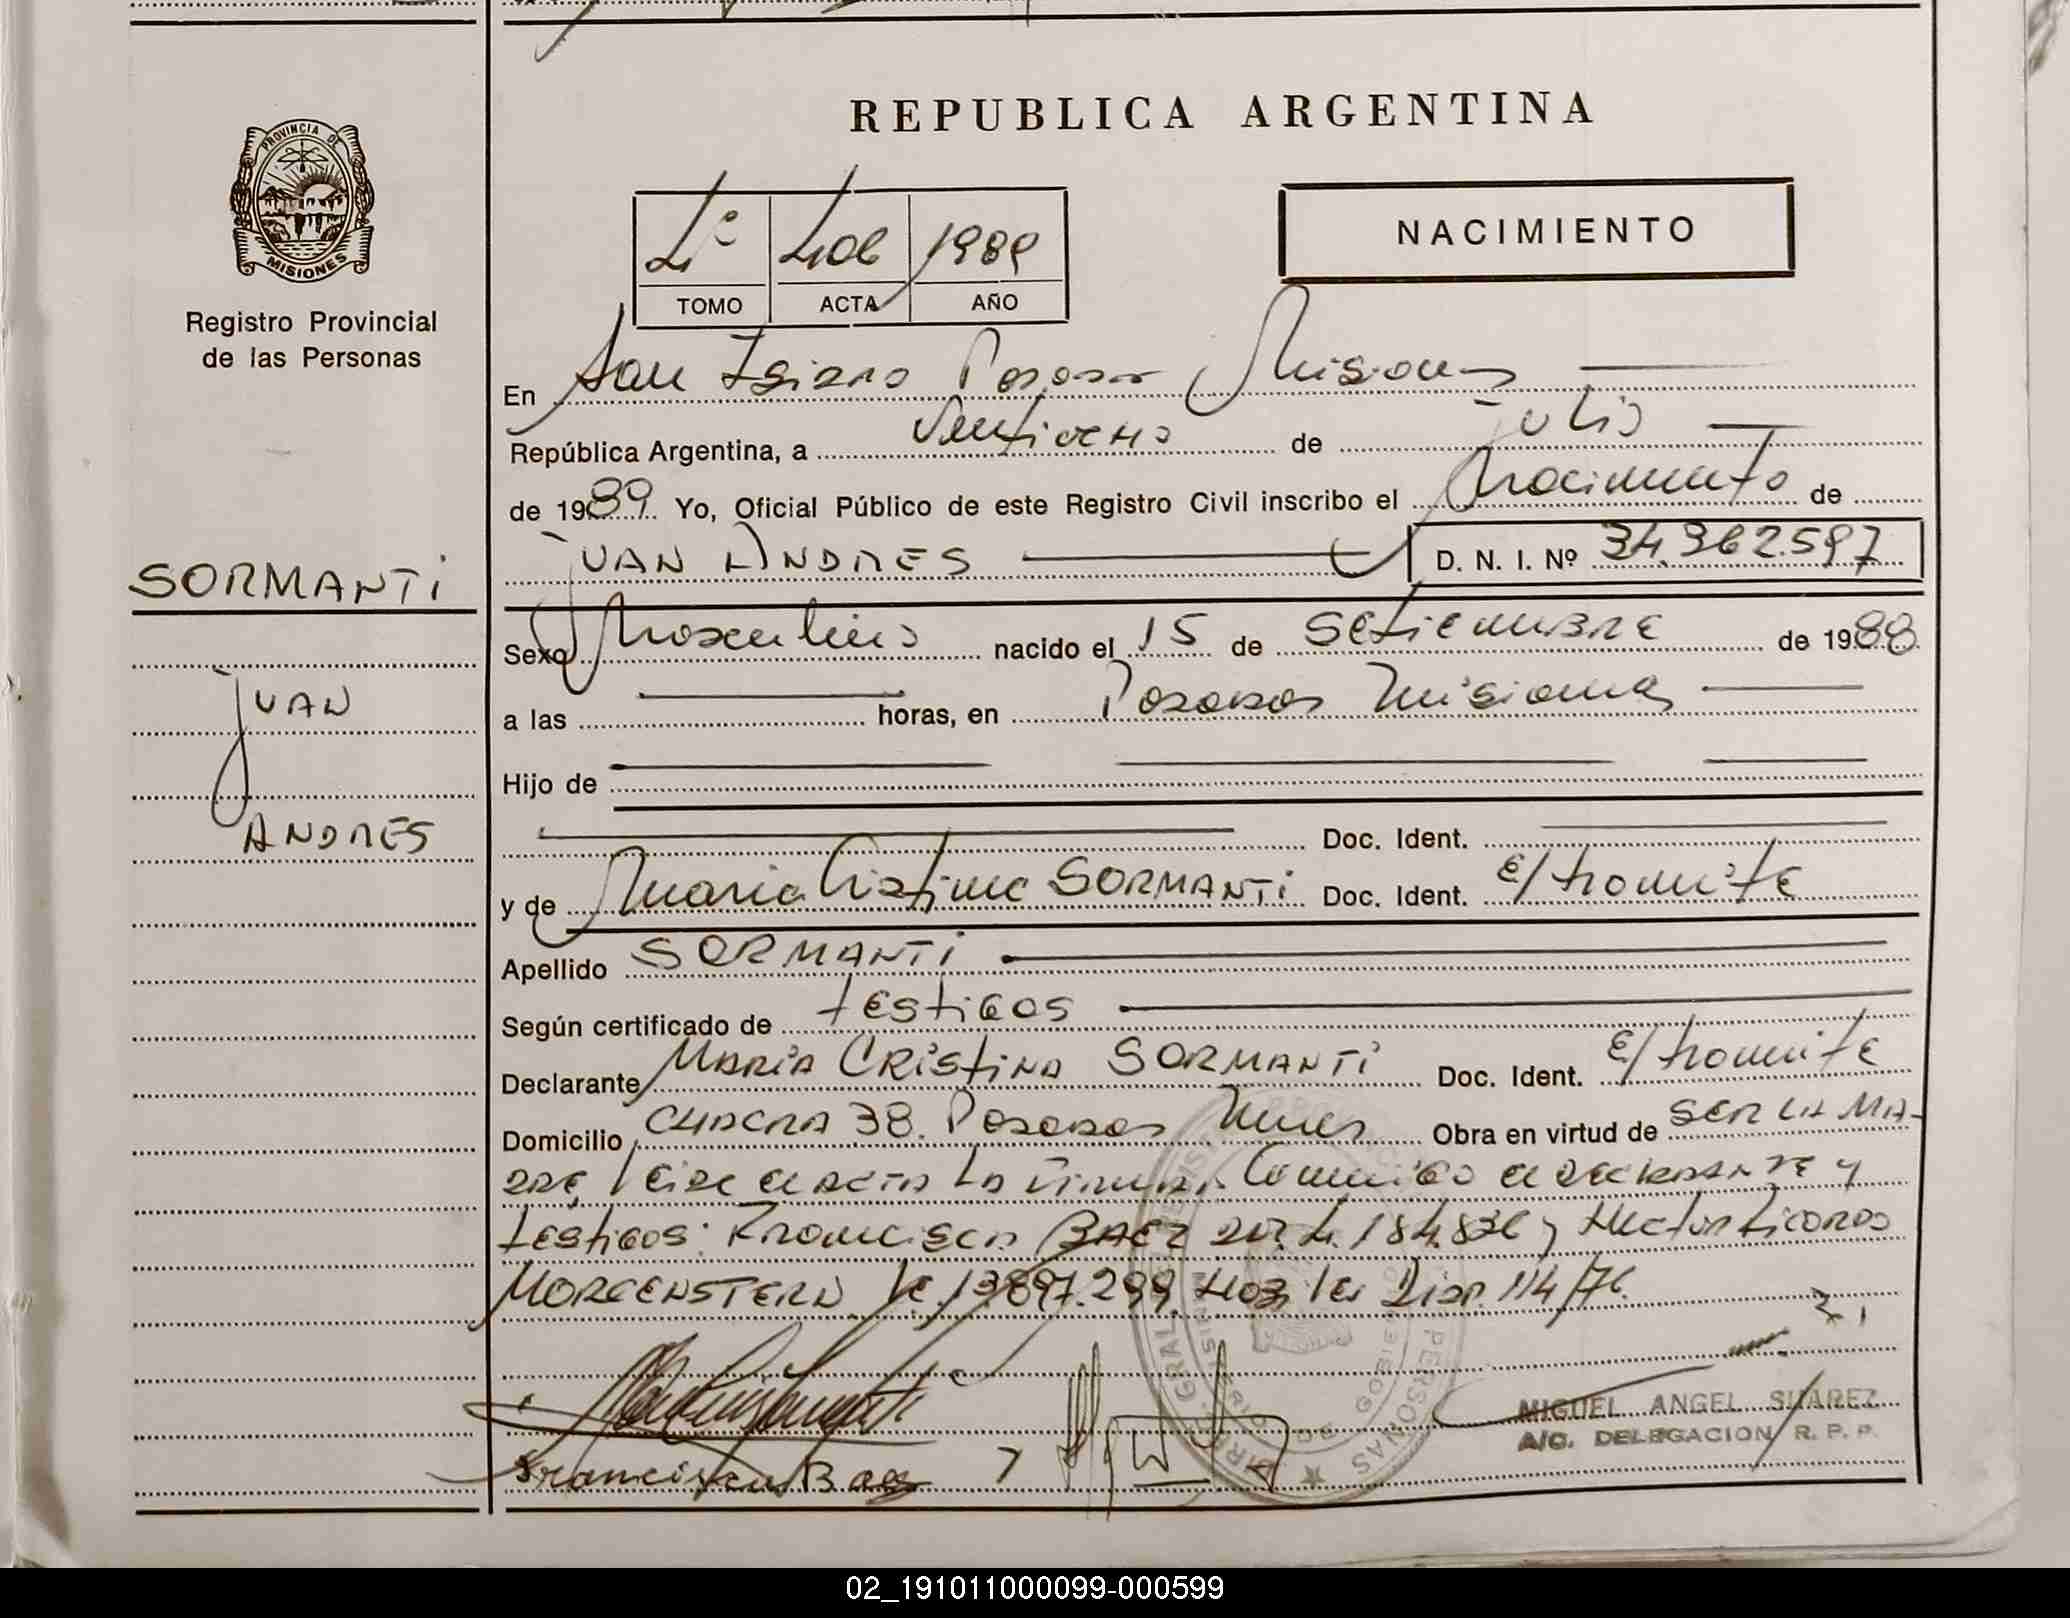 PROVINCIA DE
MISIONES
Registro Provincial
de las Personas
SORMANTI
JUAN
ANDRES
REPUBLICA ARGENTINA
NACIMIENTO
406 1989
TOMO ACTA AÑO
En San Isidro Posadas Misiones
República Argentina, a Veintiocho de julio
de 1989 Yo, Oficial Público de este Registro Civil inscribo el Nacimiento de
JUAN ANDRES D. N. I. Nº 34.362.597
Sexo Masculino nacido el 15 de SEtiEMBRE de 1988
a las horas, en Posadas Misiones
Hijo de
Doc. Ident.
y de Maria Cristina SORMANTI Doc. Ident. E/ tramite
Apellido SORMANTI
Según certificado de testigos
Declarante MARIA CRistiNA SORMANTI Doc. Ident. E/ tramite
Domicilio CHACRA 38. Posadas Mnes Obra en virtud de SER LA MA-
DRE, Leida el acta la firman Conmigo el declarante y
testigos: Francisco BAEZ DNI. 4.184.836 y Hector
MORGENSTERN 13.897.299 Disp. 114/76.
Francisco Baez
MIGUEL ANGEL SUAREZ
A/C. DELEGACION R. P. P.
02_191011000099-000599